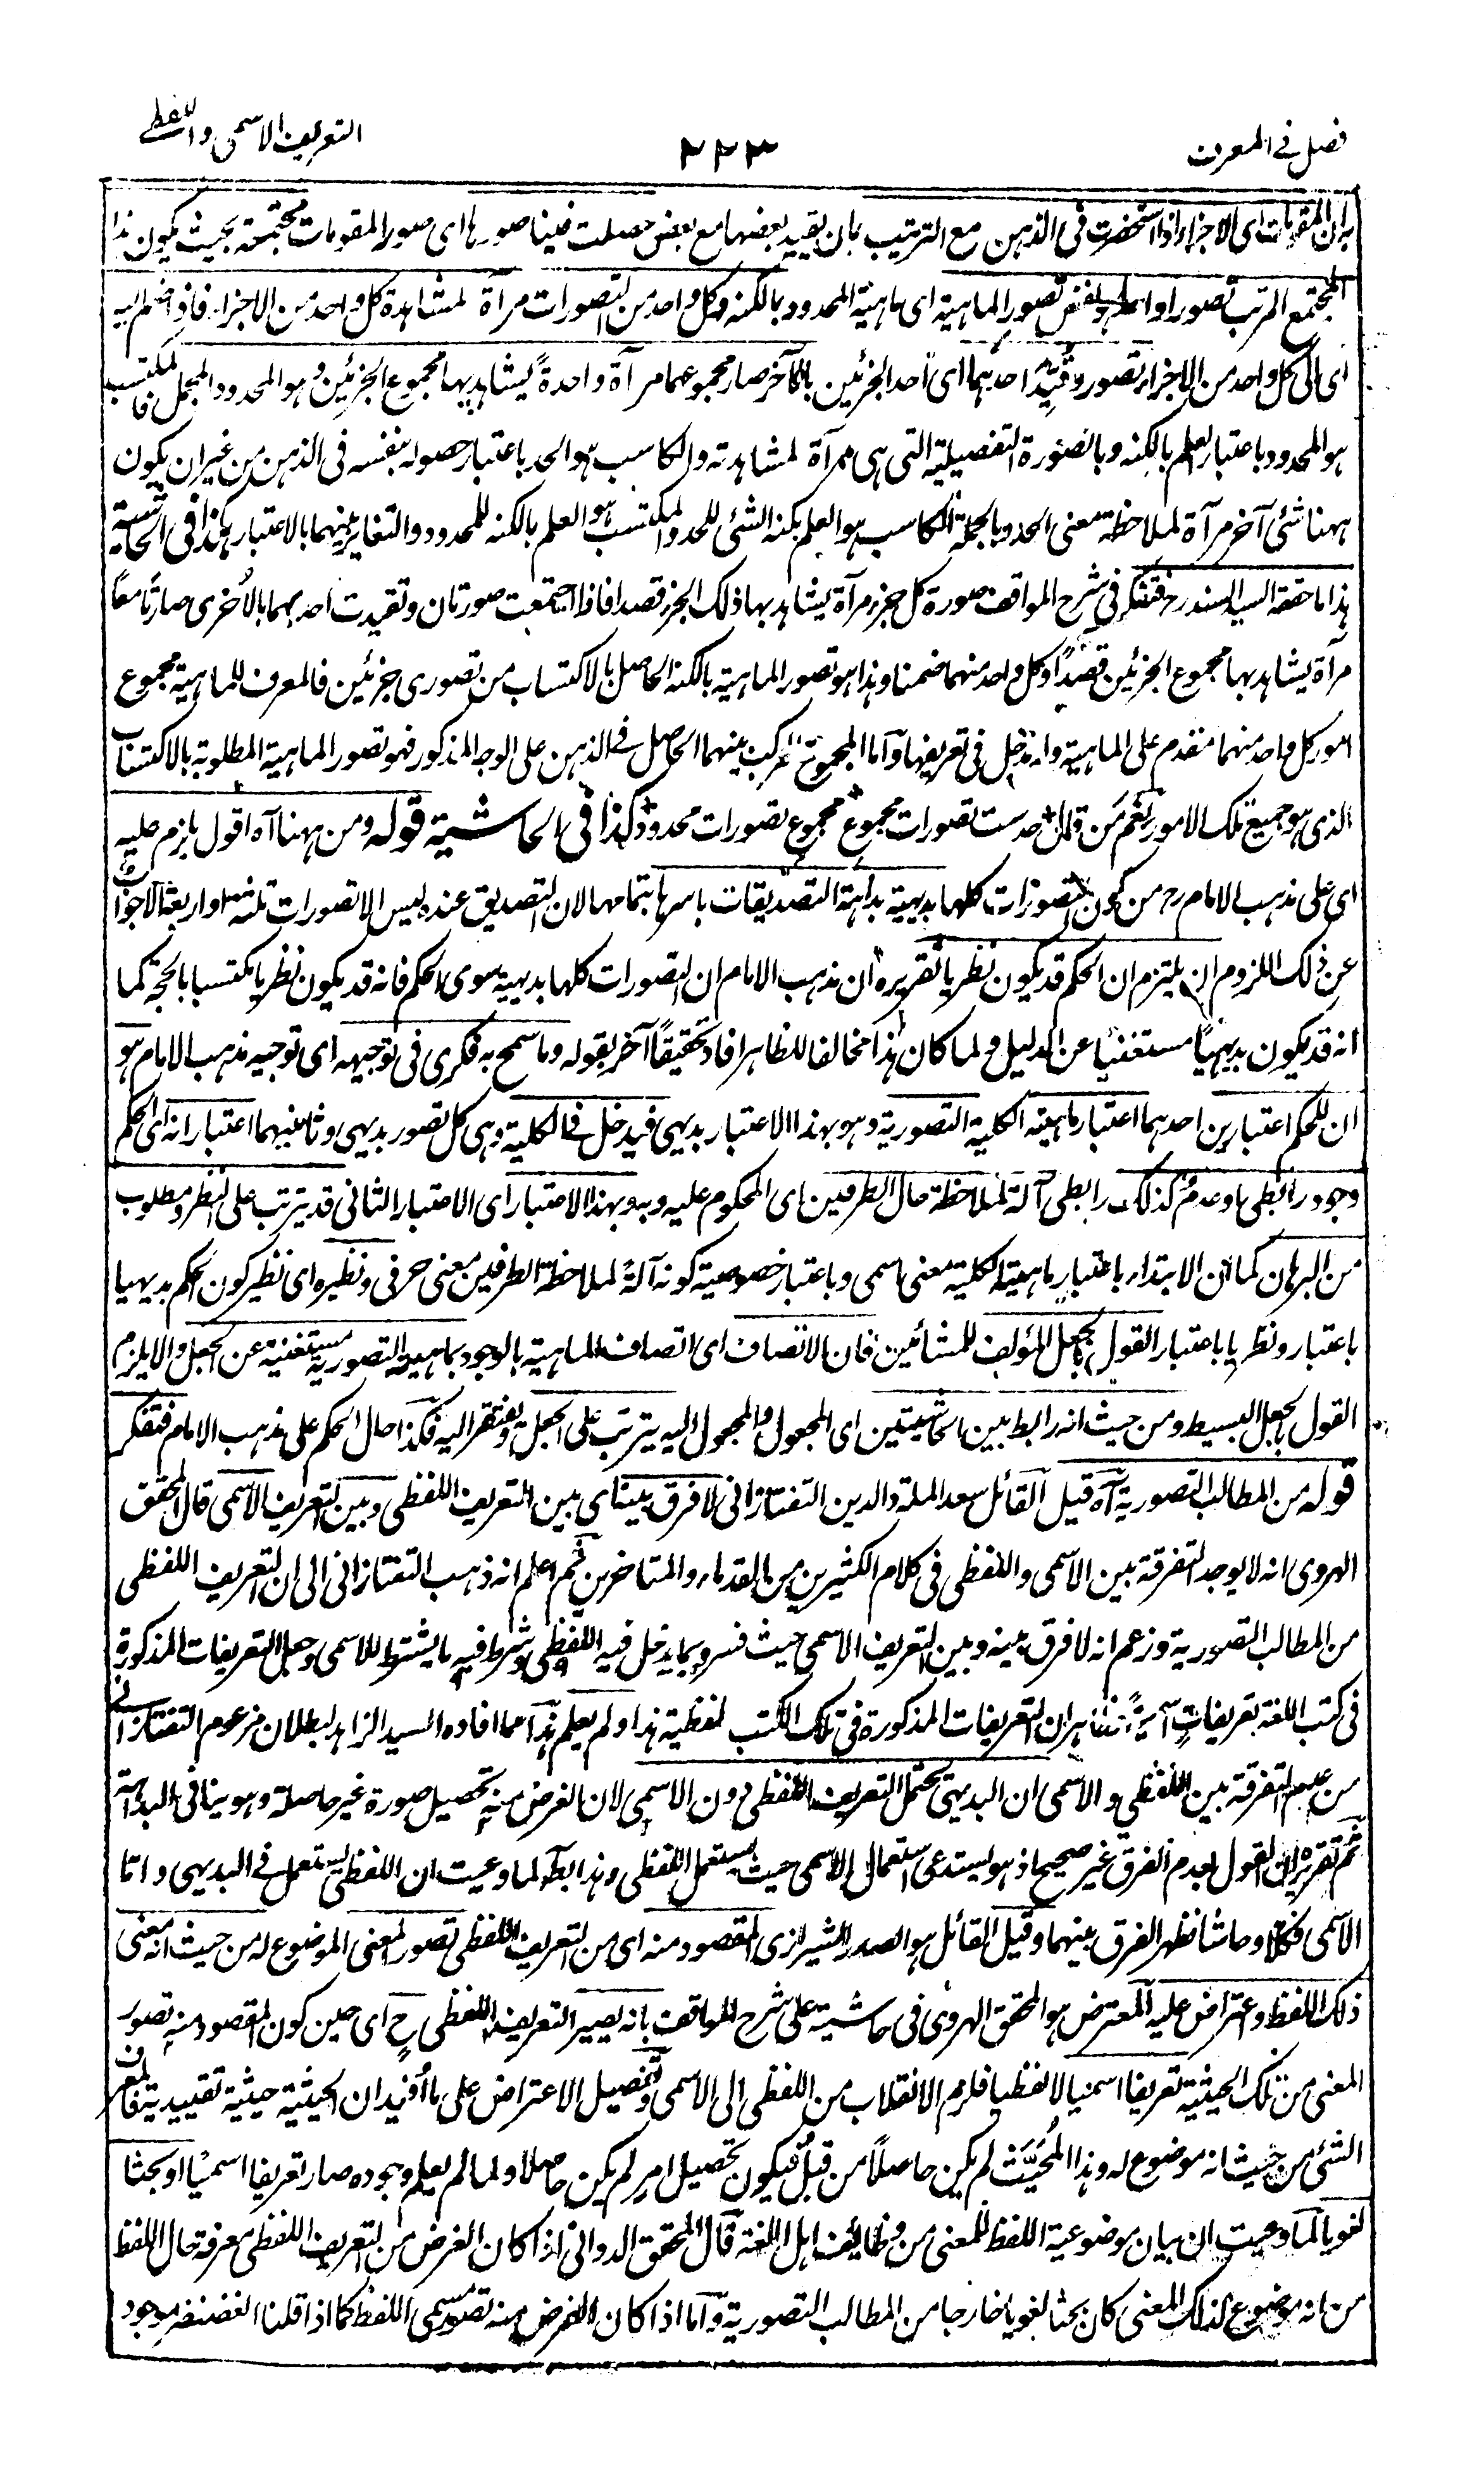 فصل فى المعرف
٢٢٣
التعريف الاسمى واللفظى
به ان المقومات اى الاجزاء اذا استحضرت فى الذهن مع الترتيب بان يقيد بعضها مع بعض حصلت فينا صورها اى صور المقومات مجتمعة بحيث يكون هذا
المجتمع المرتب تصورا واحدا هو بنفس تصور الماهية اى ماهية المحدود بالكنه وكل واحد من التصورات مرآة لمشاهدة كل واحد من الاجزاء فاذا انضم اليه
اى الى كل واحد من الاجزاء تصور وقيد احدهما اى احد الجزئين بالآخر صار مجموعهما مرآة واحدة يشاهد بها مجموع الجزئين وهو المحدود المجمل فالمكتسب
هو المحدود باعتبار العلم بالكنه وبالصورة التفصيلية التى هى مرآة لمشاهدته والكاسب هو الحد باعتبار حصوله بنفسه فى الذهن من غير ان يكون
ههنا شئ آخر مرآة لملاحظة معنى الحد وبالجملة الكاسب هو العلم بكنه الشئ للحد والمكتسب هو العلم بالكنه للمحدود والتغاير بينهما بالاعتبار هكذا فى الحاشية
هذا ما حققه السيد السند رح فتفكر فى شرح المواقف صورة كل جزء مرآة يشاهد بها ذلك الجزء قصدا فاذا اجتمعت صورتان وتقيدت احدهما بالأخرى صارتا معًا
مرآة يشاهد بها مجموع الجزئين قصدًا وكل واحد منهما ضمنا وهذا هو تصور الماهية بالكنه الحاصل بالاكتساب من تصورى جزئين فالمعرف للماهية مجموع
امور كل واحد منهما متقدم على الماهية وله دخل فى تعريفها وآما المجموع المركب بينهما الحاصل فى الذهن على الوجه المذكور فهو تصور الماهية المطلوبة بالاكتساب
الذى هو جميع تلك الامور نعم من قال حدست تصورات مجموع مجموع تصورات محدود كذا فى الحاشية قوله ومن ههنا آه اقول يلزم عليه
اى على مذهب الامام رح من كون التصورات كلها بديهية بداهة التصديقات باسرها بتمامها لان التصديق عنده ليس الا تصورات ثلثة او اربعة والجواب
عن ذلك اللزوم ان يلتزم ان الحكم قد يكون نظريا تقريره ان مذهب الامام ان التصورات كلها بديهية سوى الحكم فانه قد يكون نظريا مكتسبا بالحجة كما
انه قد يكون بديهيًا مستغنيا عن الدليل ولما كان هذا مخالفا للظاهر افاد تحقيقًا آخر بقوله وما سمح به فكرى فى توجيهه اى توجيه مذهب الامام هو
ان للحكم اعتبارين احدهما اعتبار ماهيته الكلية التصورية وهو بهذا الاعتبار بديهى فيدخل فى الكلية وهى كل تصور بديهى وثانيهما اعتبار انه اى الحكم
وجود رابطى او عدم كذلك رابطى آلة لملاحظة حال الطرفين اى المحكوم عليه وبه وبهذا الاعتبار اى الاعتبار الثانى قد يترتب على النظر ومطلوب
من البرهان كما ان الابتداء باعتبار ماهيته الكلية معنى اسمى وباعتبار خصوصية كونه آلة لملاحظة الطرفين معنى حرفى ونظيره اى نظير كون الحكم بديهيا
باعتبار ونظريا باعتبار القول بالجعل المؤلف للمشائين فان الاتصاف اى اتصاف الماهية بالوجود بماهيته التصورية مستغنية عن الجعل والا يلزم
القول بالجعل البسيط ومن حيث انه رابط بين الحاشيتين اى المجعول والمجعول اليه يترتب على الجعل ويفتقر اليه فكذا حال الحكم على مذهب الامام فتفكر
قوله من المطالب التصورية آه قيل القائل سعد الملة والدين التفتازانى لا فرق بينه اى بين التعريف اللفظى وبين التعريف الاسمى قال المحقق
الهروى انه لا يوجد التفرقة بين الاسمى واللفظى فى كلام الكثيرين من القدماء والمتاخرين ثم اعلم انه ذهب التفتازانى الى ان التعريف اللفظى
من المطالب التصورية وزعم انه لا فرق بينه وبين التعريف الاسمى حيث فسروه بما يدخل فيه اللفظى وشرط فيه ما يشترط للاسمى وجعل التعريفات المذكورة
فى كتب اللغة تعريفات اسمية مع ان التعريفات المذكورة فى تلك الكتب لفظية هذا ولم يعلم هذا مما افاده السيد الزاهد لبطلان مزعوم التفتازانى
من عدم التفرقة بين اللفظى والاسمى ان البديهى يحتمل التعريف اللفظى دون الاسمى لان الغرض منه تحصيل صورة غير حاصلة وهو ينافى البداهة
ثم تقريره ان القول بعدم الفرق غير صحيح اذ هو يستدعى استعمال الاسمى حيث يستعمل اللفظى وهذا باطل لما وعيت ان اللفظى يستعمل فى البديهى واما
الاسمى فكلا وحاشا فظهر الفرق بينهما وقيل القائل هو الصدر الشيرازى المقصود منه اى من التعريف اللفظى تصور المعنى الموضوع له من حيث انه معنى
ذلك اللفظ واعترض عليه المعترض هو المحقق الهروى فى حاشيته على شرح المواقف بانه يصير التعريف اللفظى ح اى حين كون المقصود منه تصور
المعنى من تلك الحيثية تعريفا اسميا لا لفظيا فلزم الانقلاب من اللفظى الى الاسمى وتفصيل الاعتراض على ما أفيد ان الحيثية حيثية تقييدية فالمعرف
الشئ من حيث انه موضوع له وهذا المُحَيَّث لم يكن حاصلاً من قبل فيكون تحصيل امر لم يكن حاصلا ولما لم يعلم وجوده صار تعريفا اسميًا او بحثا
لغويا لما وعيت ان بيان موضوعية اللفظ للمعنى من وظائف اهل اللغة قال المحقق الدوانى اذا كان الغرض من التعريف اللفظى معرفة حال اللفظ
من انه موضوع لذلك المعنى كان بحثا لغويا خارجا من المطالب التصورية وآما اذا كان الغرض منه تصور مسمى اللفظ كما اذا قلنا الغضنفر موجود